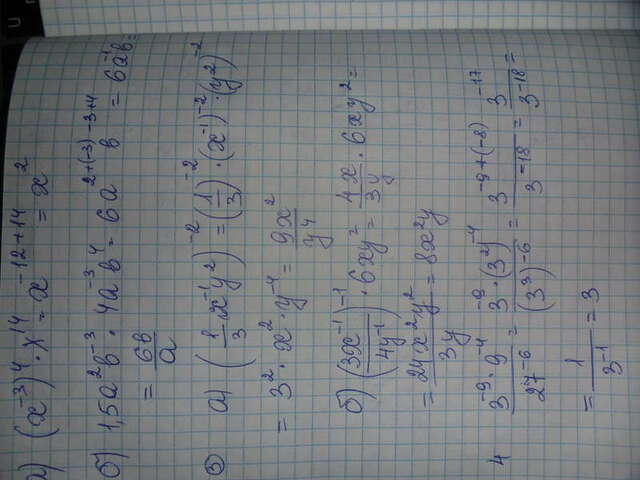 а) (x⁻³)⁴ · x¹⁴ = x⁻¹²⁺¹⁴ = x²
б) 1,5a²b⁻³ · 4a⁻³b⁴ = 6a²⁺⁽⁻³⁾b⁻³⁺⁴ = 6a⁻¹b =
= 6b/a
③ а) (1/3 x⁻¹y²)⁻² = (1/3)⁻² · (x⁻¹)⁻² · (y²)⁻²
= 3² · x² · y⁻⁴ = 9x²/y⁴
б) (3x⁻¹/4y⁻¹)⁻¹ · 6xy² = 4x/3y · 6xy² =
= 24x²y²/3y = 8x²y
4 3⁻⁹ · 9⁻⁴/27⁻⁶ = 3⁻⁹ · (3²)⁻⁴/(3³)⁻⁶ = 3⁻⁹⁺⁽⁻⁸⁾/3⁻¹⁸ = 3⁻¹⁷/3⁻¹⁸ =
= 1/3⁻¹ = 3